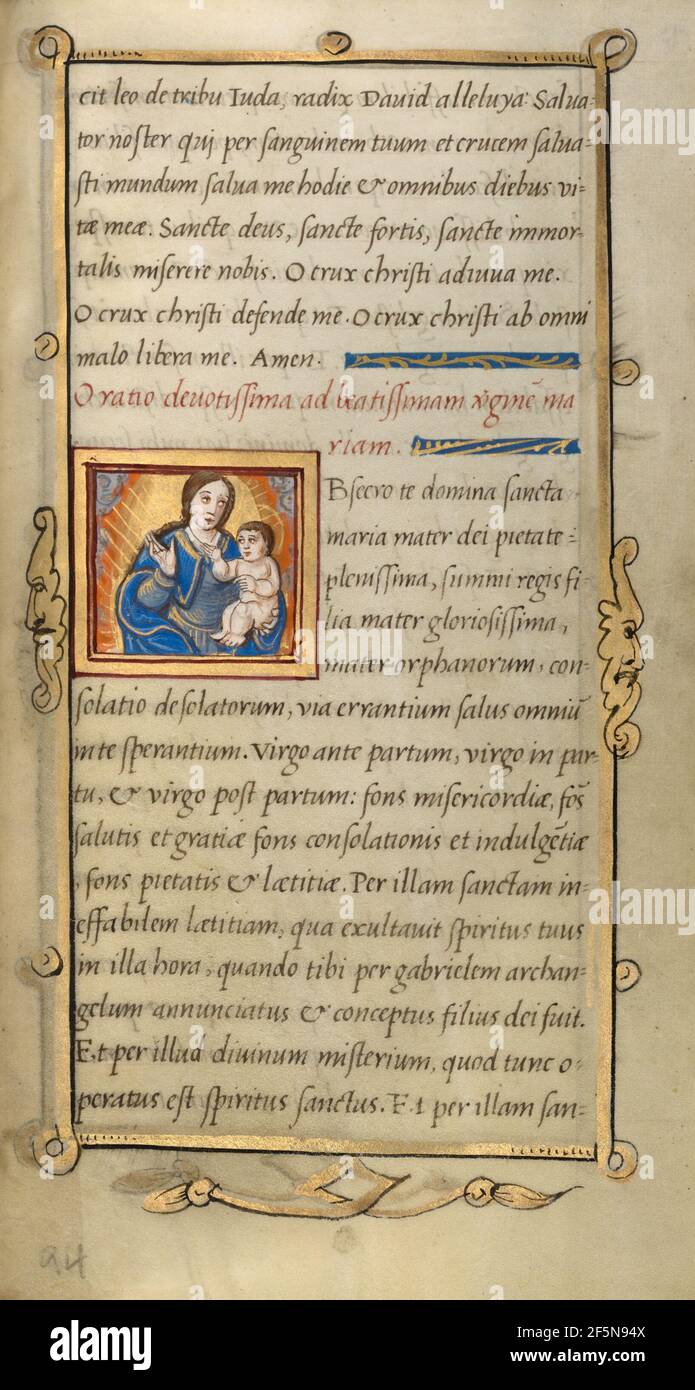 cit leo de tribu Iuda, radix Dauid alleluya: Salua-
tor noſter qui per ſanguinem tuum et crucem ſalua-
ſti mundum ſalua me hodie & omnibus diebus vi-
tæ meæ. Sancte deus, ſancte fortis, ſancte immor-
talis miſerere nobis. O crux chriſti adiuua me.
O crux chriſti defende me. O crux chriſti ab omni
malo libera me. Amen.
Oratio deuotiſſima ad beatiſſimam v̄ginē ma
riam.
Bſecro te domina ſancta
maria mater dei pietate-
pleniſſima, ſummi regis fi-
lia mater glorioſiſſima,
mater orphanorum, con-
ſolatio deſolatorum, via errantium ſalus omniū
in te ſperantium. Virgo ante partum, virgo in par-
tu, & virgo poſt partum: fons miſericordiæ, fōs
ſalutis et gratiæ fons conſolationis et indulgētiæ
, fons pietatis & lætitiæ. Per illam ſanctam in-
effabilem lætitiam, qua exultauit ſpiritus tuus
in illa hora, quando tibi per gabrielem archan-
gelum annunciatus & conceptus filius dei fuit.
Et per illud diuinum miſterium, quod tunc o-
peratus eſt ſpiritus ſanctus. Et per illam ſan-
94
alamy
alamy
Image ID: 2F5N94X
www.alamy.com